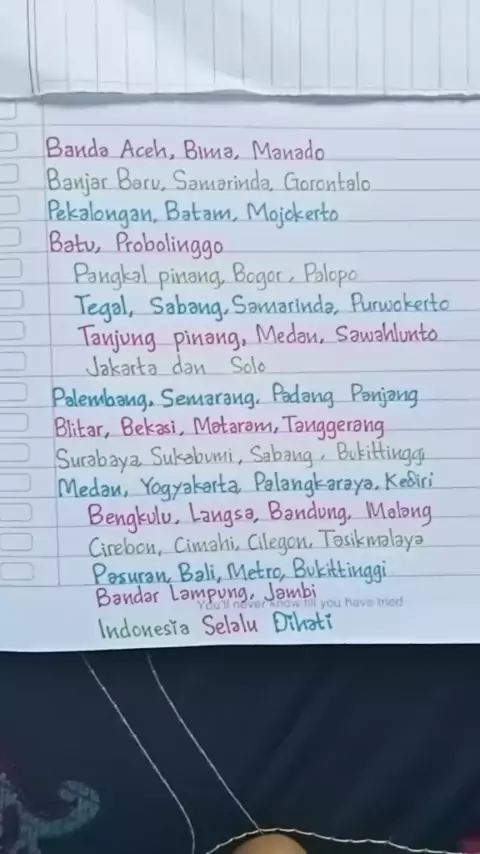 Banda Aceh, Bima, Manado
Banjar Baru, Samarinda, Gorontalo
Pekalongan, Batam, Mojokerto
Batu, Probolinggo
Pangkal pinang, Bogor, Palopo
Tegal, Sabang, Samarinda, Purwokerto
Tanjung pinang, Medan, Sawahlunto
Jakarta dan Solo
Palembang, Semarang, Padang Panjang
Blitar, Bekasi, Mataram, Tanggerang
Surabaya, Sukabumi, Sabang, Bukittinggi
Medan, Yogyakarta, Palangkaraya, Kediri
Bengkulu, Langsa, Bandung, Malang
Cirebon, Cimahi, Cilegon, Tasikmalaya
Pasuran, Bali, Metro, Bukittinggi
Bandar Lampung, Jambi
You'll never know till you have tried
Indonesia Selalu Dihati